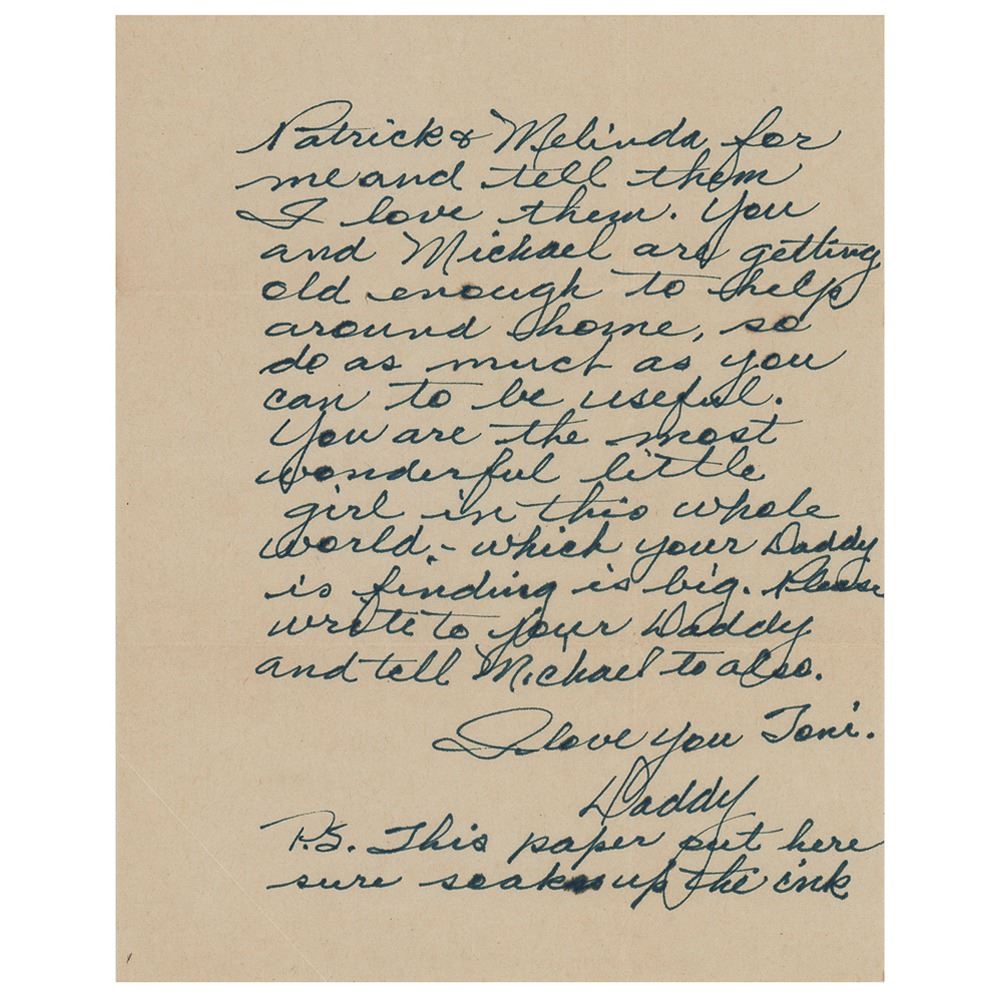 Patrick & Melinda for
me and tell them
I love them. You
and Michael are getting
old enough to help
around home, so
do as much as you
can to be useful.
You are the most
wonderful little
girl in this whole
world, - which your Daddy
is finding is big. Please
write to your Daddy
and tell Michael to also.
I love you Toni.
Daddy
P.S. This paper out here
sure soaks up the ink